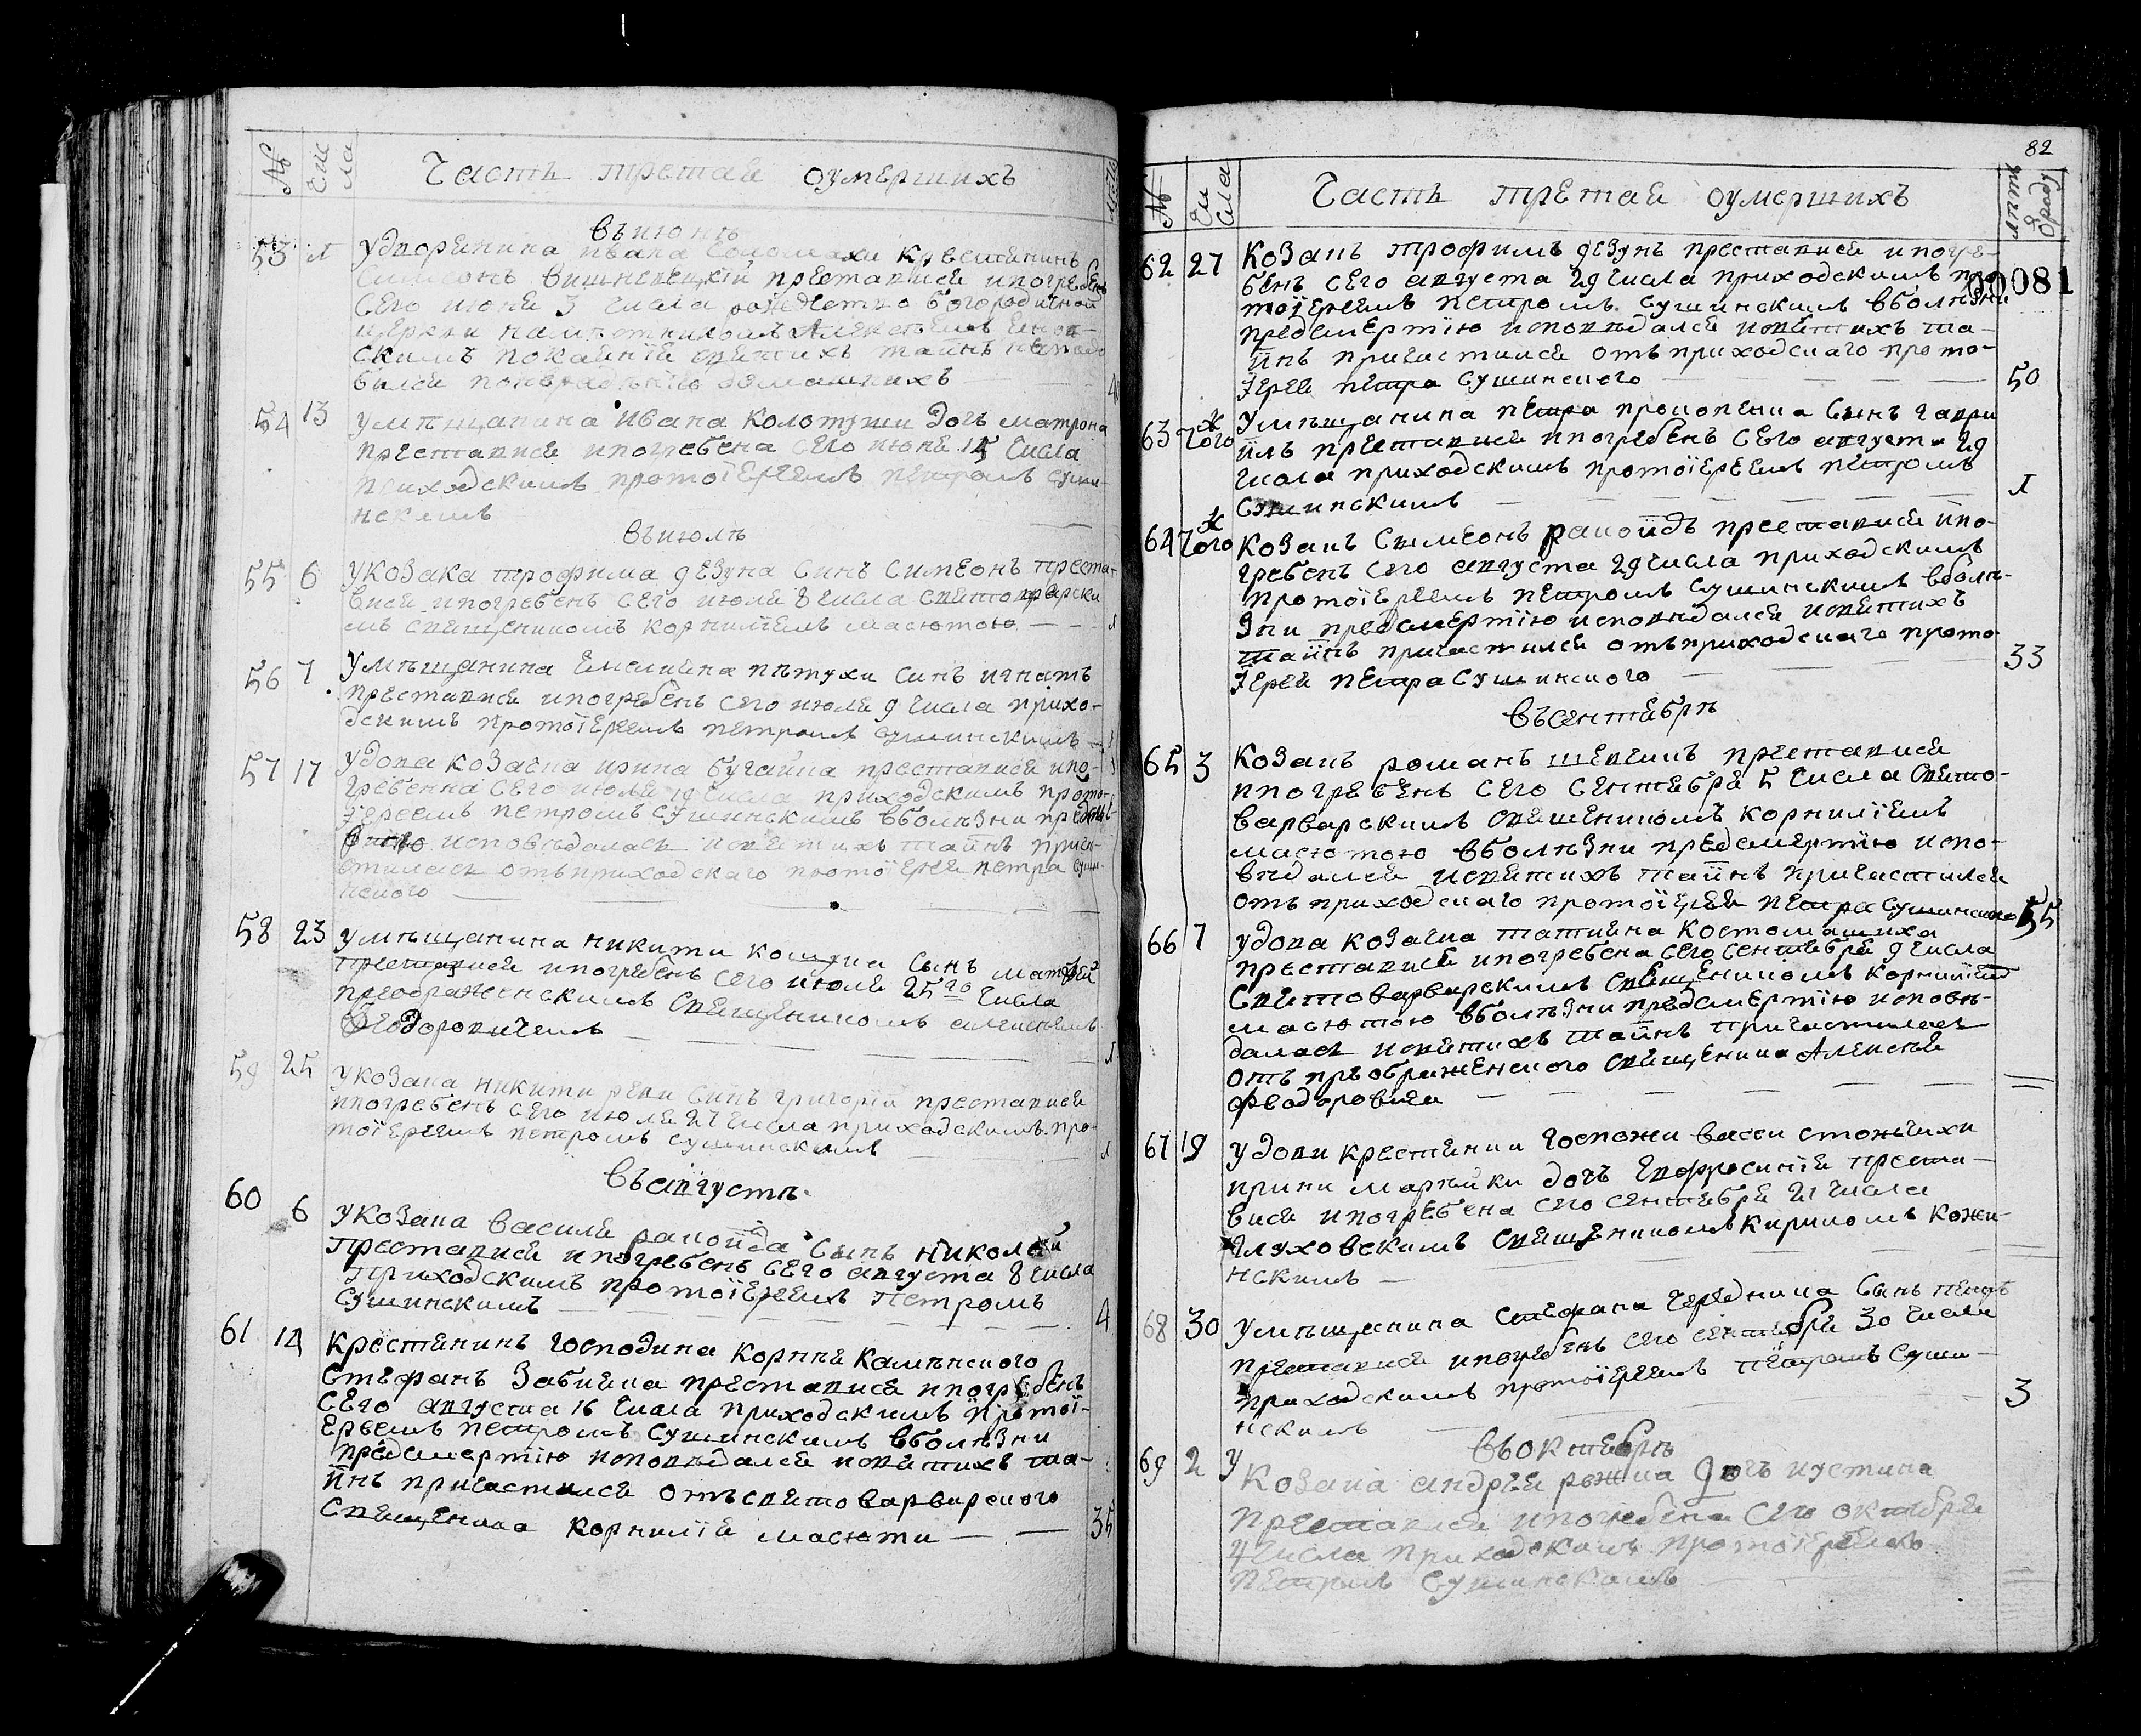 №
Чис
ла
Часть третая оумершихъ
въ июнѣ
53 1 У дворянина ивана крестянинъ
вишневецкій преставися и погребенъ
сего июня 3 числа рождество богородичной
церкви намѣстникомъ Алексѣемъ
скимъ покаянія святихъ таинъ
домашнихъ
54 13 У мѣщанина Ивана Колотуши дочь матрона
преставися и погребена сего июня 15 числа
приходскимъ протоіереемъ петромъ суши-
нскимъ
въ июлѣ
55 6 У козака трофима дзуна Синъ Симеонъ преста-
вися и погребенъ сего июля 8 числа святоварварски
мъ священикомъ корнилиемъ масютою 1
56 7 У мѣщанина Емелияна пѣтухи синъ игнатъ
преставися и погребенъ сего июля 9 числа прихо-
дскимъ протоіереемъ петромъ сушинскимъ 1
57 17 Удова козачка ирина бугайка преставися и по-
гребенна сего июля 19 числа приходскимъ прото-
іереемъ петромъ сушинскимъ вболѣзни предсм-
исповѣдалася исвятихъ таинъ прича-
стилася отъ приходскаго протоіерея петра суши-
нского
58 23 У мѣщанина никити кошука Сынъ матфей
преставися и погребенъ сего июля 25го числа
преображенскимъ священикомъ алексѣемъ
Феодоровичемъ 1
59 25 У козака никити реки Синъ григорій преставися
и погребенъ сего июля 27 числа приходскимъ про-
тоіереемъ петромъ сушинскимъ 1
Въ августѣ
60 6 У козака василя ракоида Сынъ николай
преставися и погребенъ сего августа 8 числа
приходскимъ протоіереемъ Петромъ
сушинскимъ 4
61 14 Крестянинъ господина корнѣя каменского
Стефанъ Забияка преставися и погребенъ
сего августа 16 числа приходскимъ протоі-
ереемъ петромъ сушинскимъ вболѣзни
предсмертію исповѣдался исвятихъ таи-
инъ причастился отъ святоварварского
священика корнилія масюти 35
82
00081
№
Чи
сла
Часть третая оумершихъ
лѣтъ
62 27 Козакъ трофимъ дзунъ преставися и погре-
бенъ сего августа 29 числа приходскимъ про-
тоіереемъ петромъ сушинскимъ вболѣзни
предсмертію исповѣдался исвятихъ та-
инъ причастился отъ приходскаго прото-
іерея петра сушинского 50
63 Того ж У мѣщанина петра прокопенка Синъ гаври
илъ преставися и погребенъ сего августа 29
числа приходскимъ протоіереемъ петромъ
Сушинскимъ 1
64 Того ж Козакъ Сымеонъ ракоидъ преставися ипо-
гребенъ сего августа 29 числа приходскимъ
протоіереемъ петромъ сушинскимъ вболѣ-
зни предсмертію исповѣдался исвятихъ
таинъ причастился отъ приходскаго прото-
іерея петра Сушинского 33
въ сентябрѣ
65 3 Козакъ романъ шевелъ преставися
и погребенъ сего Сентября 5 числа Свято-
варварскимъ священикомъ корниліемъ
масютою вболѣзни предсмертію испо-
вѣдался исвятихъ таинъ причастился
отъ приходскаго протоіерея петра сушинского 55
66 7 удова козачка татияна костомашиха
преставися и погребена сего сентября 9 числа
Святоварварскимъ священикомъ корниліемъ
масютою вболѣзни предсмертію исповѣ-
далася исвятихъ таинъ причастилася
отъ преображенского священика Алексѣя
феодоровича
67 19 У удови крестянки госпожи васси стожчихи
ирини марчики дочъ Евфросинія преста-
вися и погребена сего сентября 21 числа
глуховскимъ священикомъ кириломъ коже-
нскимъ
68 30 У мѣщанина стефана чередника Сынъ петръ
преставися и погребенъ сего сентября 30 числа
приходскимъ протоіереемъ петромъ Суши-
нскимъ 3
въ октябрѣ
69 2 У козака андрея рожка дочъ иустина
преставися и погребена сего октября
4 числа приходскимъ протоіереемъ
петромъ сушинскимъ